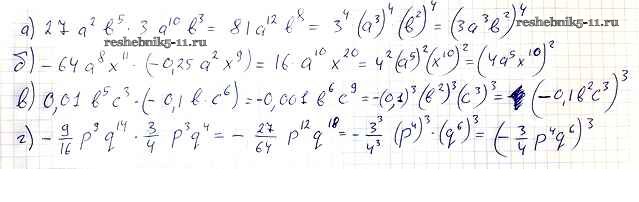 а) 27 a² b⁵ · 3 a¹⁰ b³ = 81 a¹² b⁸ = 3⁴ (a³)⁴ (b²)⁴ = (3a³b²)⁴
reshebnik5-11.ru
reshebnik5-11.ru
б) -64 a⁸ x¹¹ · (-0,25 a² x⁹) = 16 · a¹⁰ x²⁰ = 4² (a⁵)² (x¹⁰)² = (4a⁵ x¹⁰)²
в) 0,01 b⁵ c³ · (-0,1 b · c⁶) = -0,001 b⁶ c⁹ = -(0,1)³ (b²)³ (c³)³ = (-0,1b²c³)³
г) - 9/16 p⁹ q¹⁴ · 3/4 p³ q⁴ = - 27/64 p¹² q¹⁸ = - 3³/4³ (p⁴)³ · (q⁶)³ = (- 3/4 p⁴ q⁶)³